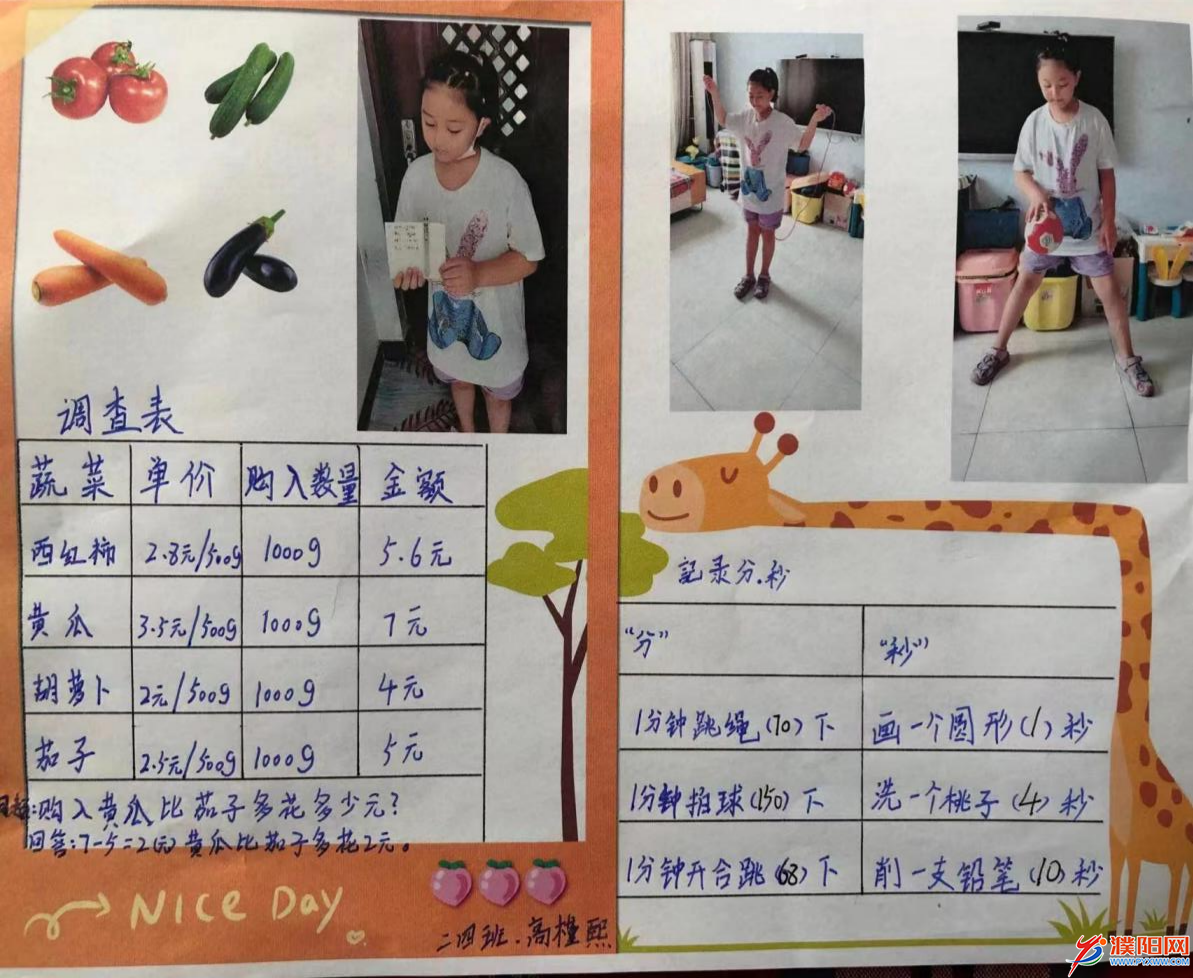 调查表
蔬菜 单价 购入数量 金额
西红柿 2.8元/500g 1000g 5.6元
黄瓜 3.5元/500g 1000g 7元
胡萝卜 2元/500g 1000g 4元
茄子 2.5元/500g 1000g 5元
:购入黄瓜比茄子多花多少元?
回答:7-5=2(元)黄瓜比茄子多花2元。
NICE DAY
二四班.高 熙
記录分.秒
“分” “秒”
1分钟跳绳(70)下 画一个圆形(1)秒
1分钟拍球(150)下 洗一个桃子(4)秒
1分钟开合跳(68)下 削一支铅笔(10)秒
濮阳网
WWW.PYXWW.COM